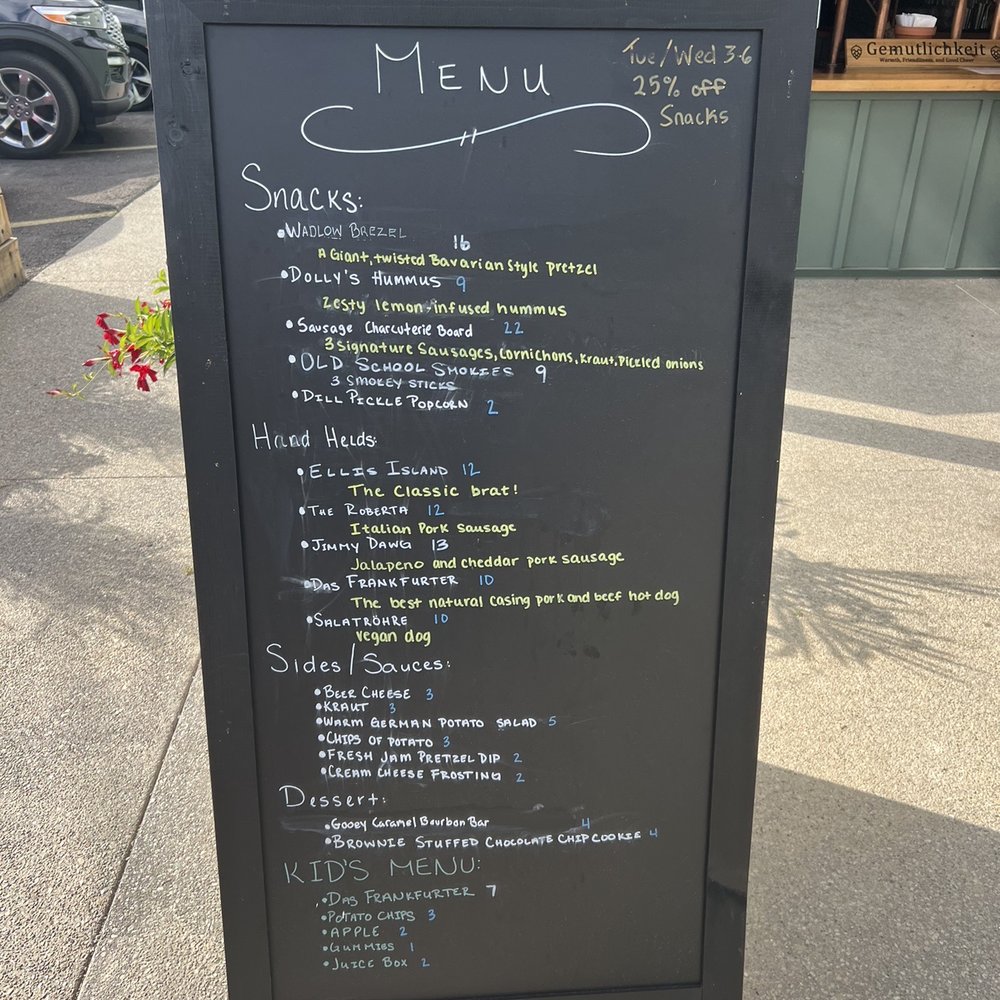 MENU
Tue/Wed 3-6
25% off
Snacks
Gemutlichkeit
Warmth, Friendliness, and Good Cheer
Snacks:
• WADLOW BREZEL 16
A Giant, twisted Bavarian Style pretzel
• DOLLY'S HUMMUS 9
Zesty lemon-infused hummus
• Sausage Charcuterie Board 22
3 Signature Sausages, Cornichons, Kraut, Pickled onions
• OLD SCHOOL SMOKIES 9
3 SMOKEY STICKS
• DILL PICKLE POPCORN 2
Hand Helds:
• ELLIS ISLAND 12
The Classic brat!
• THE ROBERTA 12
Italian Pork Sausage
• JIMMY DAWG 13
Jalapeno and cheddar pork sausage
• DAS FRANKFURTER 10
The best natural casing pork and beef hot dog
• SALATRÖHRE 10
Vegan dog
Sides/Sauces:
• BEER CHEESE 3
• KRAUT 3
• WARM GERMAN POTATO SALAD 5
• CHIPS OF POTATO 3
• FRESH JAM PRETZEL DIP 2
• CREAM CHEESE FROSTING 2
Dessert:
• Gooey Caramel Bourbon Bar 4
• BROWNIE STUFFED CHOCOLATE CHIP COOKIE 4
KID'S MENU:
• DAS FRANKFURTER 7
• POTATO CHIPS 3
• APPLE 2
• GUMMIES 1
• JUICE BOX 2